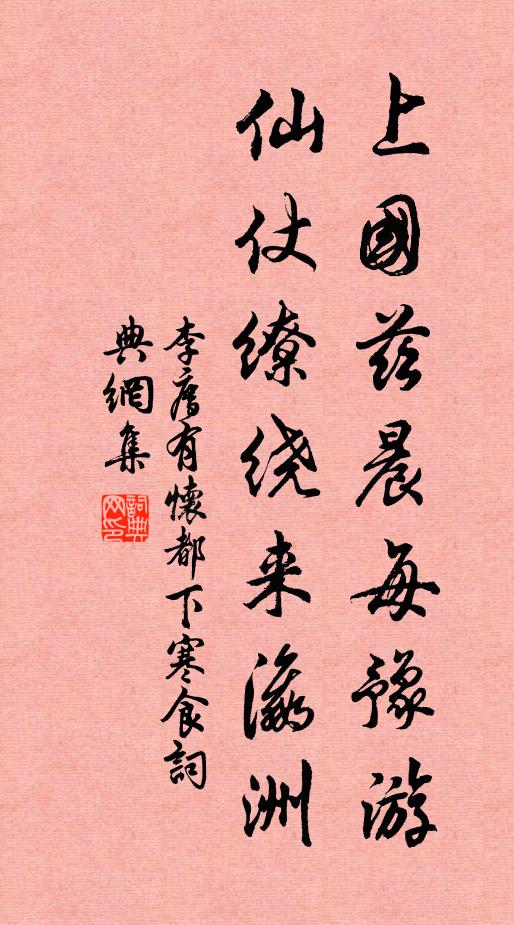 上國兹晨每豫游
仙仗缭绕来瀛洲
李廌有懷都下寒食詞
典網集
詞典网印